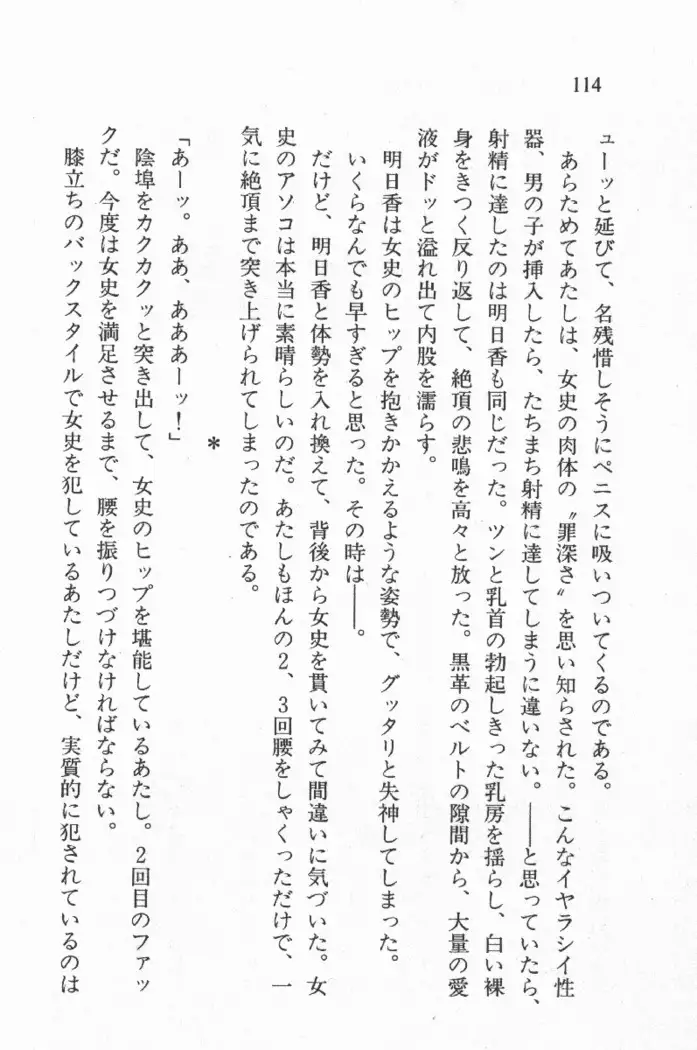 114
ューーッと延びて、名残惜しそうにペニスに吸いついてくるのである。
あらためてあたしは、女史の肉体の〝罪深さ〟を思い知らされた。こんなイヤラシイ性
器、男の子が挿入したら、たちまち射精に達してしまうに違いない。――と思っていたら、
射精に達したのは明日香も同じだった。ツンと乳首の勃起しきった乳房を揺らし、白い裸
身をきつく反り返して、絶頂の悲鳴を高々と放った。黒革のベルトの隙間から、大量の愛
液がドッと溢れ出て内股を濡らす。
明日香は女史のヒップを抱きかかえるような姿勢で、グッタリと失神してしまった。
いくらなんでも早すぎると思った。その時は――。
だけど、明日香と体勢を入れ換えて、背後から女史を貫いてみて間違いに気づいた。女
史のアソコは本当に素晴らしいのだ。あたしもほんの2、3回腰をしゃくっただけで、一
気に絶頂まで突き上げられてしまったのである。
*
「あーッ。ああ、あああーッ！」
陰埠をカクカクッと突き出して、女史のヒップを堪能しているあたし。2回目のファッ
クだ。今度は女史を満足させるまで、腰を振りつづけなければならない。
膝立ちのバックスタイルで女史を犯しているあたしだけど、実質的に犯されているのは